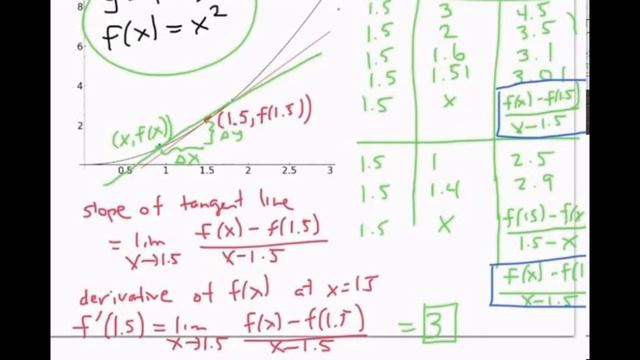 f(x) = x²
8
6
4
2
0.5 1 1.5 2 2.5 3
(x, f(x))
(1.5, f(1.5))
Δy
Δx
slope of tangent line
= lim x→1.5 f(x) - f(1.5) / x - 1.5
derivative of f(x) at x=1.5
f'(1.5) = lim x→1.5 f(x) - f(1.5) / x - 1.5 = 3
1.5 3 4.5
1.5 2 3.5
1.5 1.6 3.1
1.5 1.51 3.01
1.5 x f(x) - f(1.5) / x - 1.5
1.5 1 2.5
1.5 1.4 2.9
1.5 x f(1.5) - f(x / 1.5 - x
f(x) - f(1 / x - 1.5